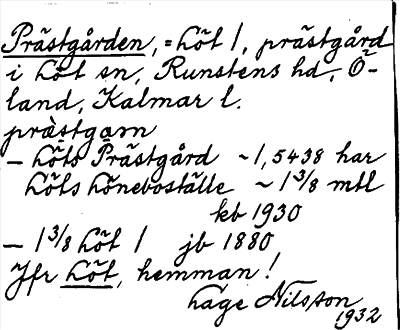 Prästgården, = Löt 1, prästgård
i Löt sn, Runstens hd, Ö-
land, Kalmar l.
prȧ̈stga̱m
— Löts Prästgård ~ 1,5438 har
Löts Löneboställe ~ 1 3/8 mtl
kb 1930
— 1 3/8 Löt 1 jb 1880
Jfr Löt, hemman!
Lage Nilsson
1932